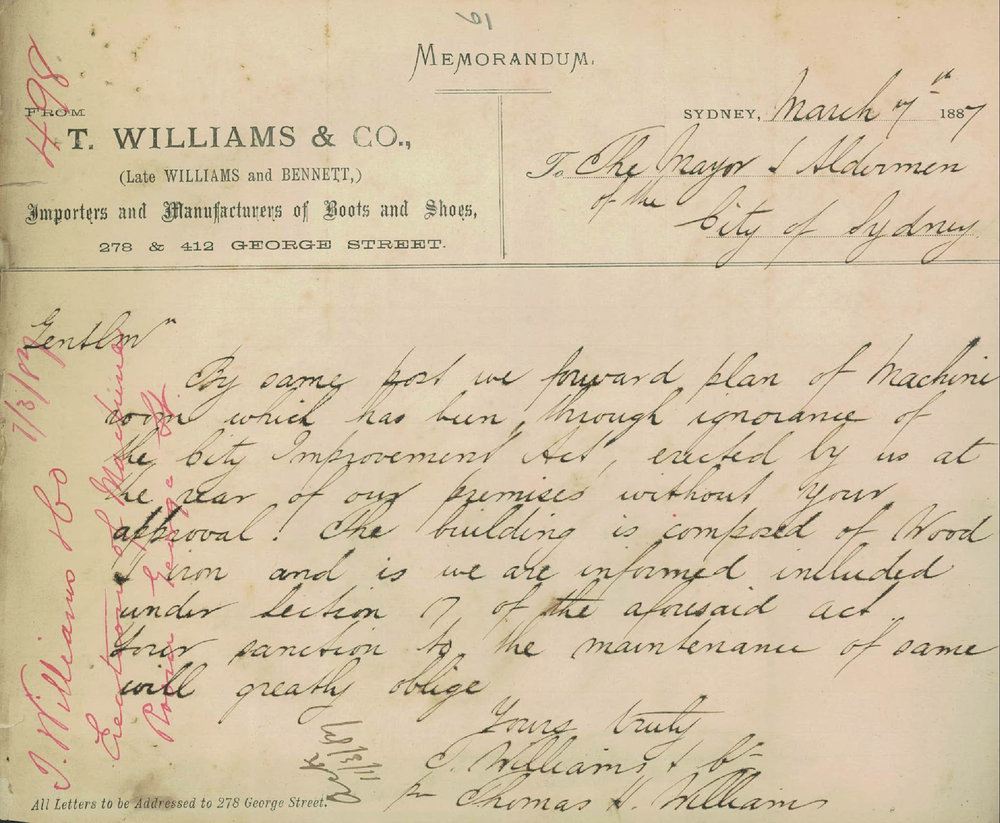 MEMORANDUM.
498
FROM
T. WILLIAMS & CO.,
(Late WILLIAMS and BENNETT,)
Importers and Manufacturers of Boots and Shoes,
278 & 412 GEORGE STREET.
SYDNEY, March 7th 1887
To The Mayor & Aldermen
of the
City of Sydney
Gentlmn
By same post we forward plan of Machine
room which has been, through ignorance of
the City Improvement Act, erected by us at
the rear of our premises without your
approval. The building is composed of Wood
& iron and is we are informed included
under section 7 of the aforesaid act
Your sanction to the maintenance of same
will greatly oblige
Yours truly
T. Williams & Co
pr Thomas H. Williams
All Letters to be Addressed to 278 George Street.
T. Williams & Co 7/3/87
Erection of Machine
Room George St.